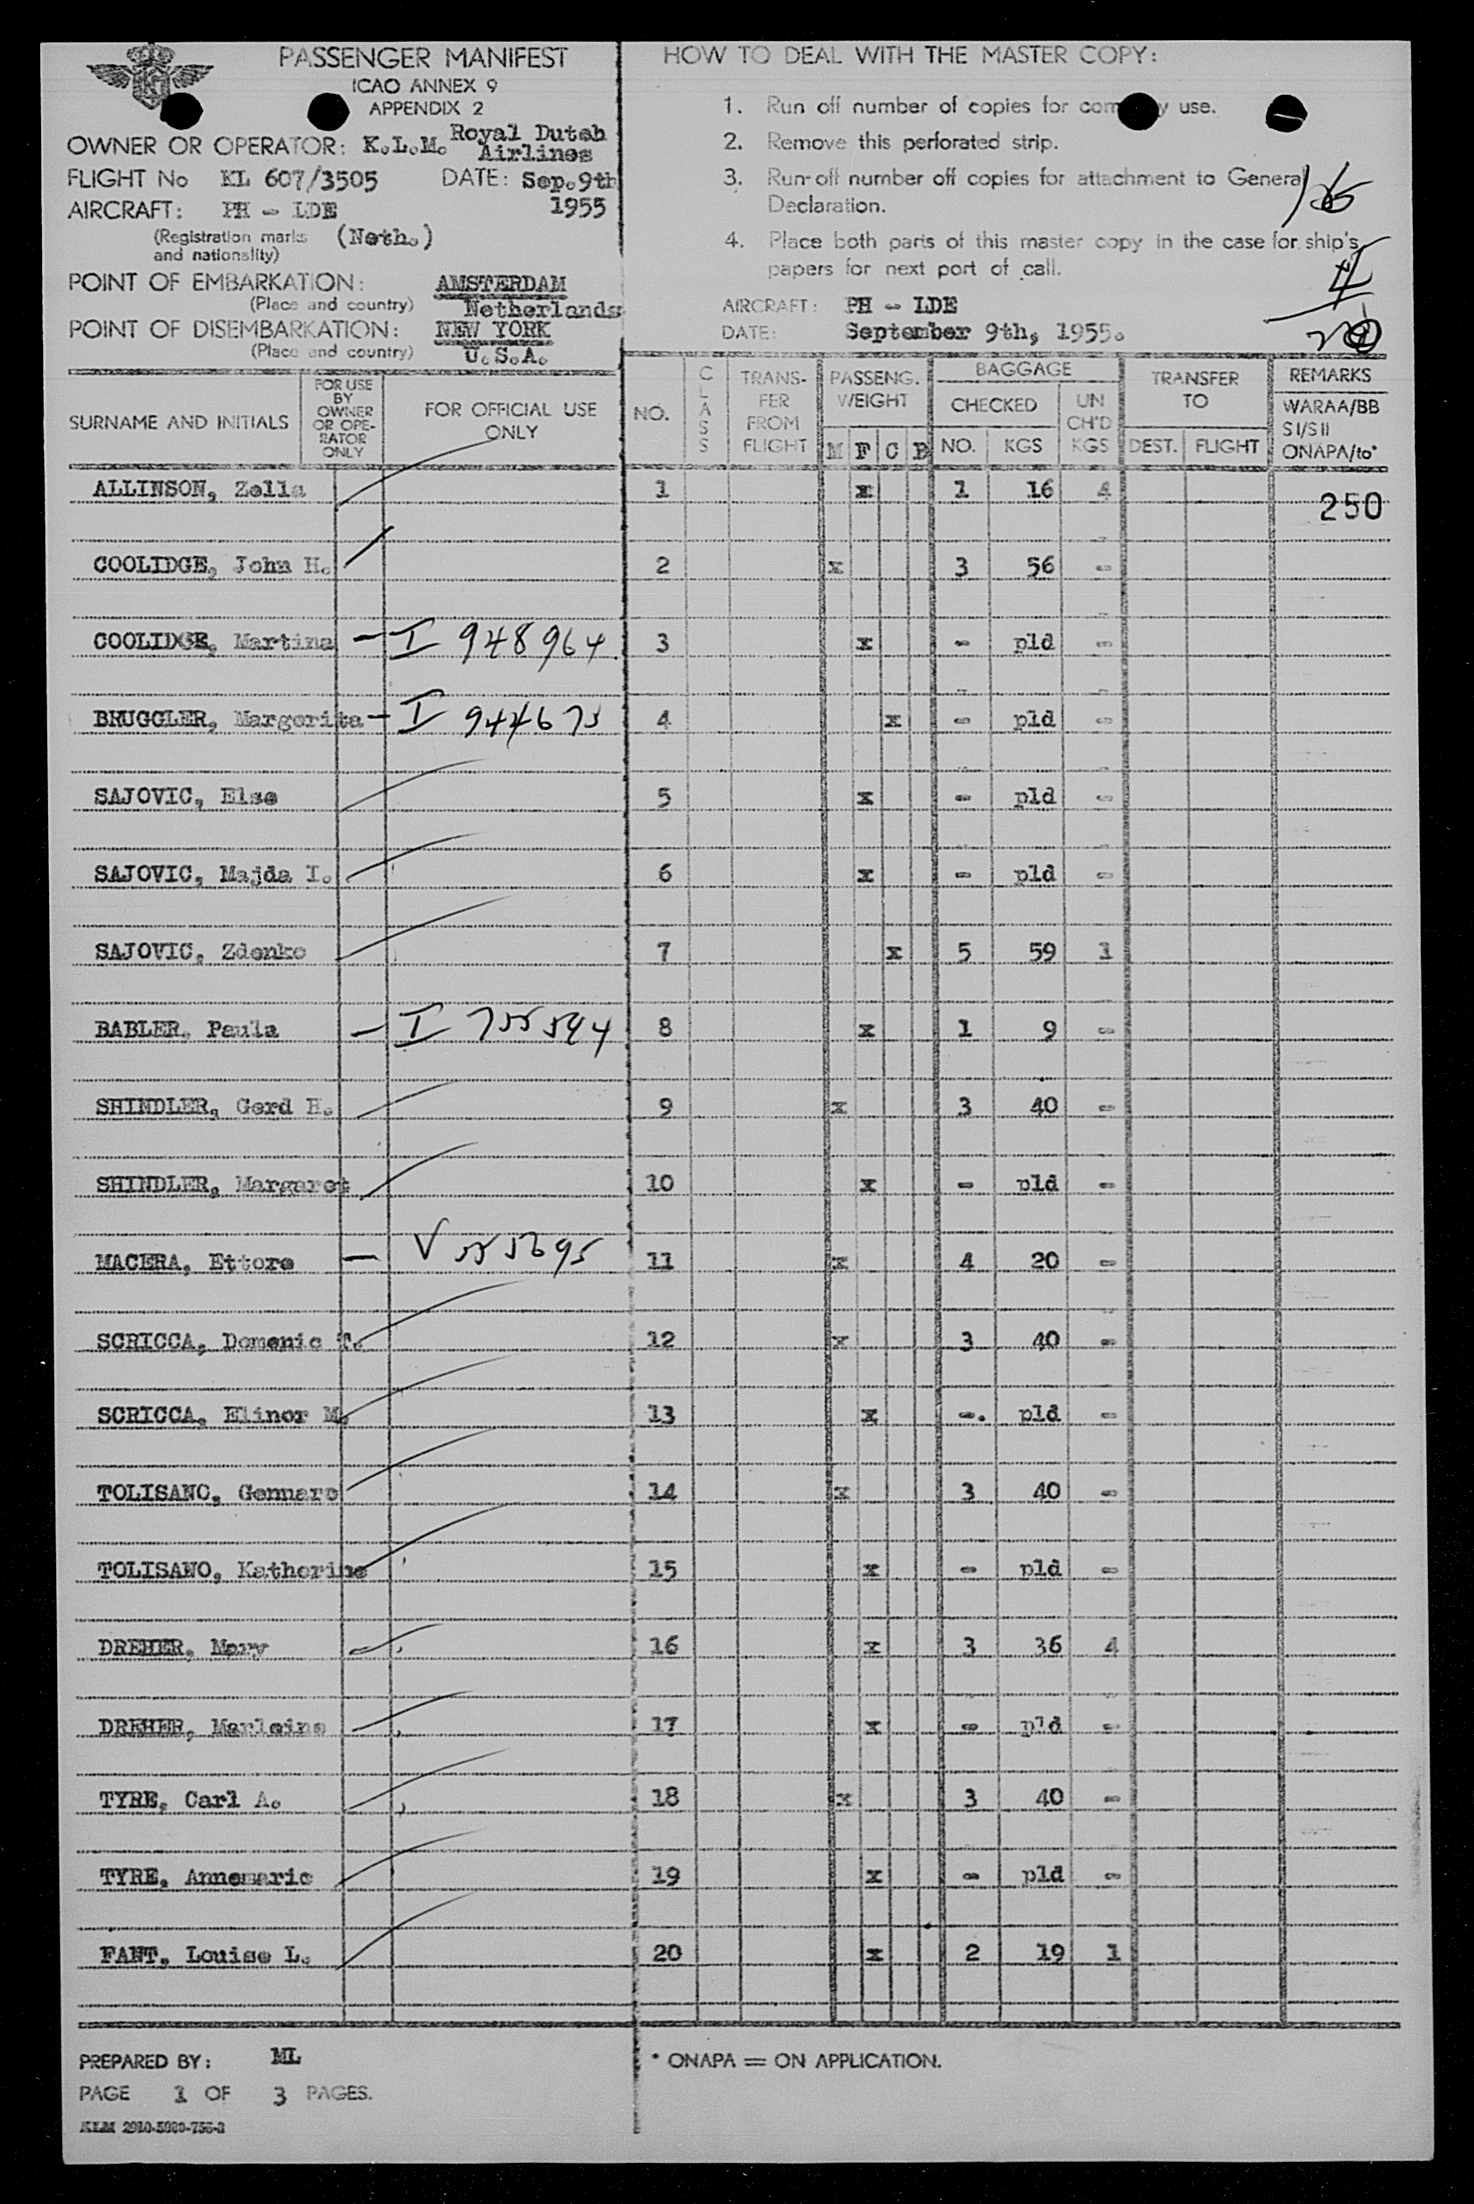 PASSENGER MANIFEST
ICAO ANNEX 9
APPENDIX 2
OWNER OR OPERATOR: K.L.M. Royal Dutch Airlines
FLIGHT No KL 607/3505 DATE: Sep. 9th 1955
AIRCRAFT: PH - LDE
(Registration marks and nationality) (Neth.)
POINT OF EMBARKATION: AMSTERDAM
(Place and country) Netherlands
POINT OF DISEMBARKATION: NEW YORK
(Place and country) U.S.A.
HOW TO DEAL WITH THE MASTER COPY:
1. Run off number of copies for company use.
2. Remove this perforated strip.
3. Run-off number off copies for attachment to General
Declaration.
4. Place both parts of this master copy in the case for ship's
papers for next port of call.
AIRCRAFT: PH - LDE
DATE: September 9th, 1955.
SURNAME AND INITIALS
FOR USE BY OWNER OR OPE-RATOR ONLY
FOR OFFICIAL USE ONLY
NO.
CLASS
TRANS-FER FROM FLIGHT
PASSENG. WEIGHT
M F C B
BAGGAGE
CHECKED
NO. KGS
UN CH'D KGS
TRANSFER TO
DEST. FLIGHT
REMARKS
WARAA/BB
SI/SII
ONAPA/to*
ALLINSON, Zella 1 x 1 16 4
250
COOLIDGE, John H. 2 x 3 56 -
COOLIDGE, Martina - I 948964 3 x - pld -
BRUGGLER, Margerita - I 944675 4 x - pld -
SAJOVIC, Else 5 x - pld -
SAJOVIC, Majda I. 6 x - pld -
SAJOVIC, Zdenko 7 x 5 59 1
BABLER, Paula - I 755594 8 x 1 9 -
SHINDLER, Gerd H. 9 x 3 40 -
SHINDLER, Margaret 10 x - pld -
MACERA, Ettore - V 555695 11 x 4 20 -
SCRICCA, Domenic T. 12 x 3 40 -
SCRICCA, Elinor M. 13 x -. pld -
TOLISANO, Gennaro 14 x 3 40 -
TOLISANO, Katherine 15 x - pld -
DREHER, Mary 16 x 3 36 4
DREHER, Marleine 17 x - pld -
TYRE, Carl A. 18 x 3 40 -
TYRE, Annemarie 19 x - pld -
FANT, Louise L. 20 x 2 19 1
PREPARED BY: ML
PAGE 1 OF 3 PAGES.
* ONAPA = ON APPLICATION.